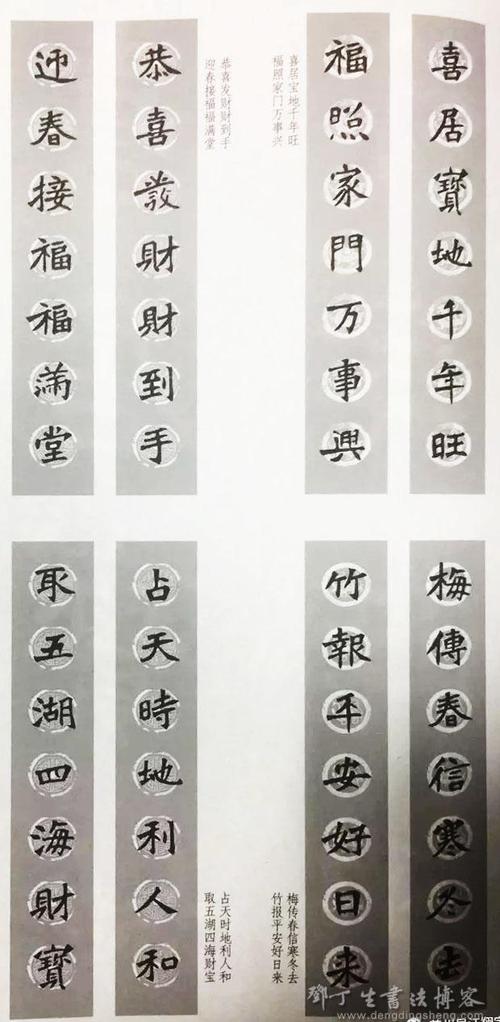 喜居寶地千年旺
福照家門万事興
喜居宝地千年旺
福照家门万事兴
恭喜發財財到手
迎春接福福滿堂
恭喜发财财到手
迎春接福福满堂
梅傳春信寒冬去
竹報平安好日来
梅传春信寒冬去
竹报平安好日来
占天時地利人和
取五湖四海財寶
占天时地利人和
取五湖四海财宝
鄧丁生書法博客
www.dengdingsheng.com